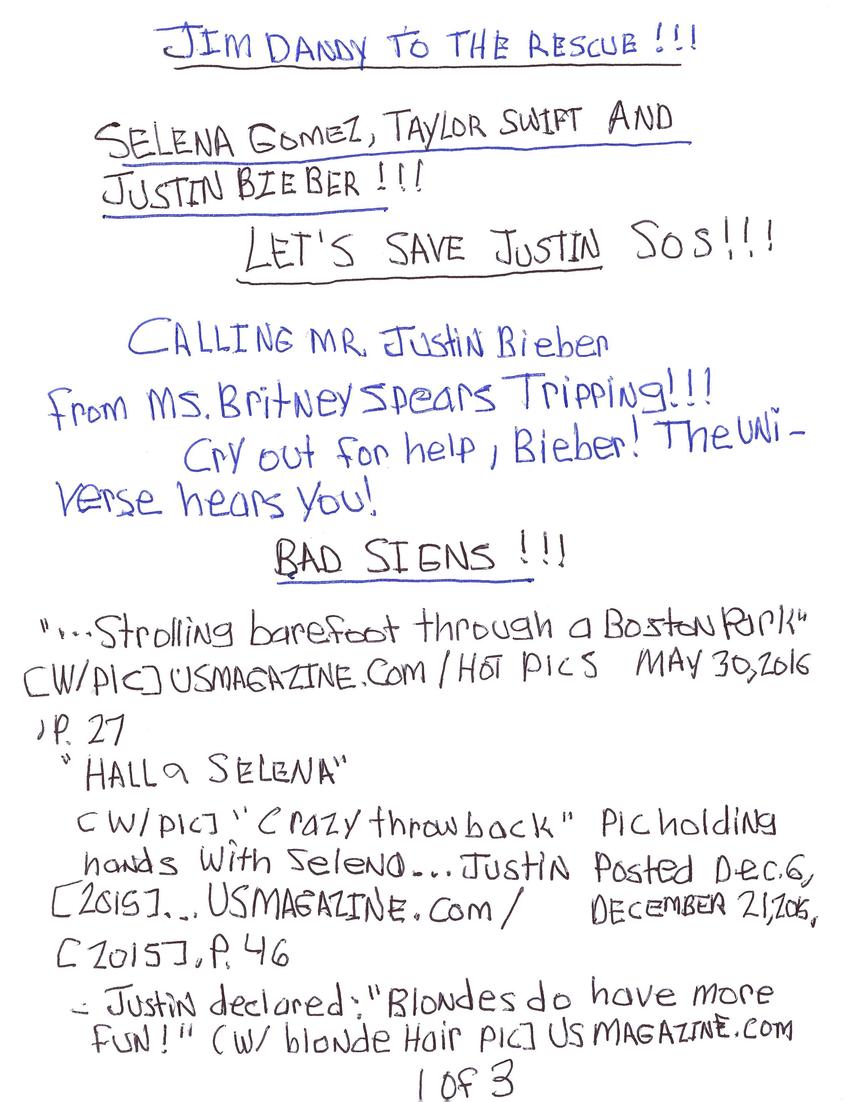 JIM DANDY TO THE RESCUE!!!
SELENA GOMEZ, TAYLOR SWIFT AND
JUSTIN BIEBER!!!
LET'S SAVE JUSTIN SOS!!!
CALLING MR. Justin Bieber
from MS. Britney Spears Tripping!!!
Cry out for help, Bieber! The Uni-
verse hears you!
BAD SIGNS!!!
"...Strolling barefoot through a Boston Park"
[W/PIC] USMAGAZINE.Com/HOT PICS MAY 30, 2016
, P. 27
"HALLa SELENA"
[W/PIC] "Crazy throwback" Pic holding
hands with Selena... Justin Posted Dec. 6,
[2015]... USMAGAZINE.Com/ DECEMBER 21, 205,
[2015], P. 46
- Justin declared: "Blondes do have more
FUN!" [W/ blonde Hair PIC] US MAGAZINE.COM
1 OF 3